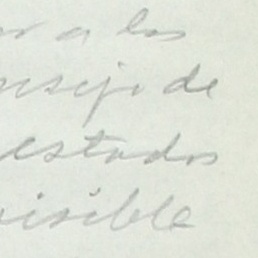 a los
nsejo de
estados
visible